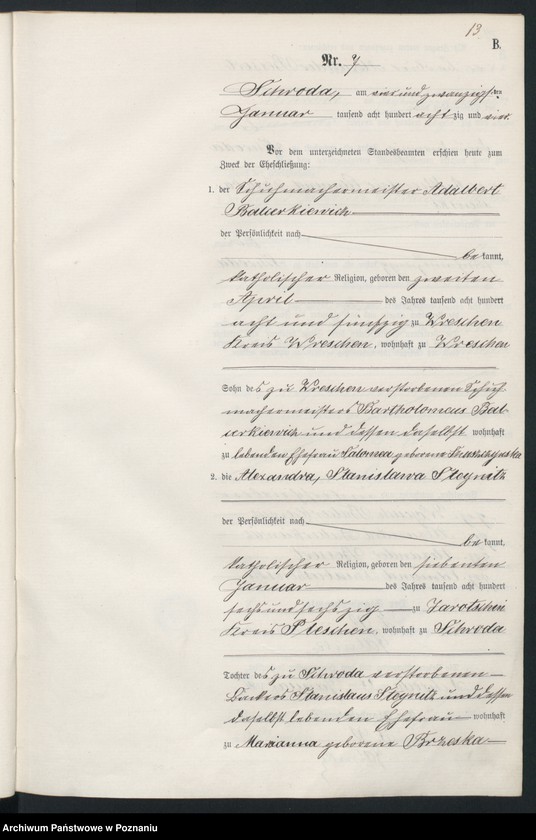 13
B.
Nr. 7
Schroda, am vier und zwanzigsten
Januar tausend acht hundert acht zig und vier
Vor dem unterzeichneten Standesbeamten erschien heute zum
Zweck der Eheschließung:
1. der Schuhmachermeister Adalbert
der Persönlichkeit nach
be kannt,
katholischer Religion, geboren den zweiten
April des Jahres tausend acht hundert
acht und fünfzig zu Wreschen
Kreis Wreschen, wohnhaft zu Wreschen
Sohn des zu Wreschen verstorbenen Schuh
machermeisters Bartholomeus Bal
und dessen daselbst wohnhaft
zu lebenden Ehefrau Salomea geborene
2. die Alexandra, Stanislawa Stegnitz
der Persönlichkeit nach
be kannt,
katholischer Religion, geboren den siebenten
Januar des Jahres tausend acht hundert
sechs und sechszig zu Jarotschin
Kreis Pleschen, wohnhaft zu Schroda
Tochter des zu Schroda verstorbenen
Bäckers Stanislaus Stegnitz und dessen
daselbst lebenden Ehefrau wohnhaft
zu Marianna geborene Brzeska
Archiwum Państwowe w Poznaniu